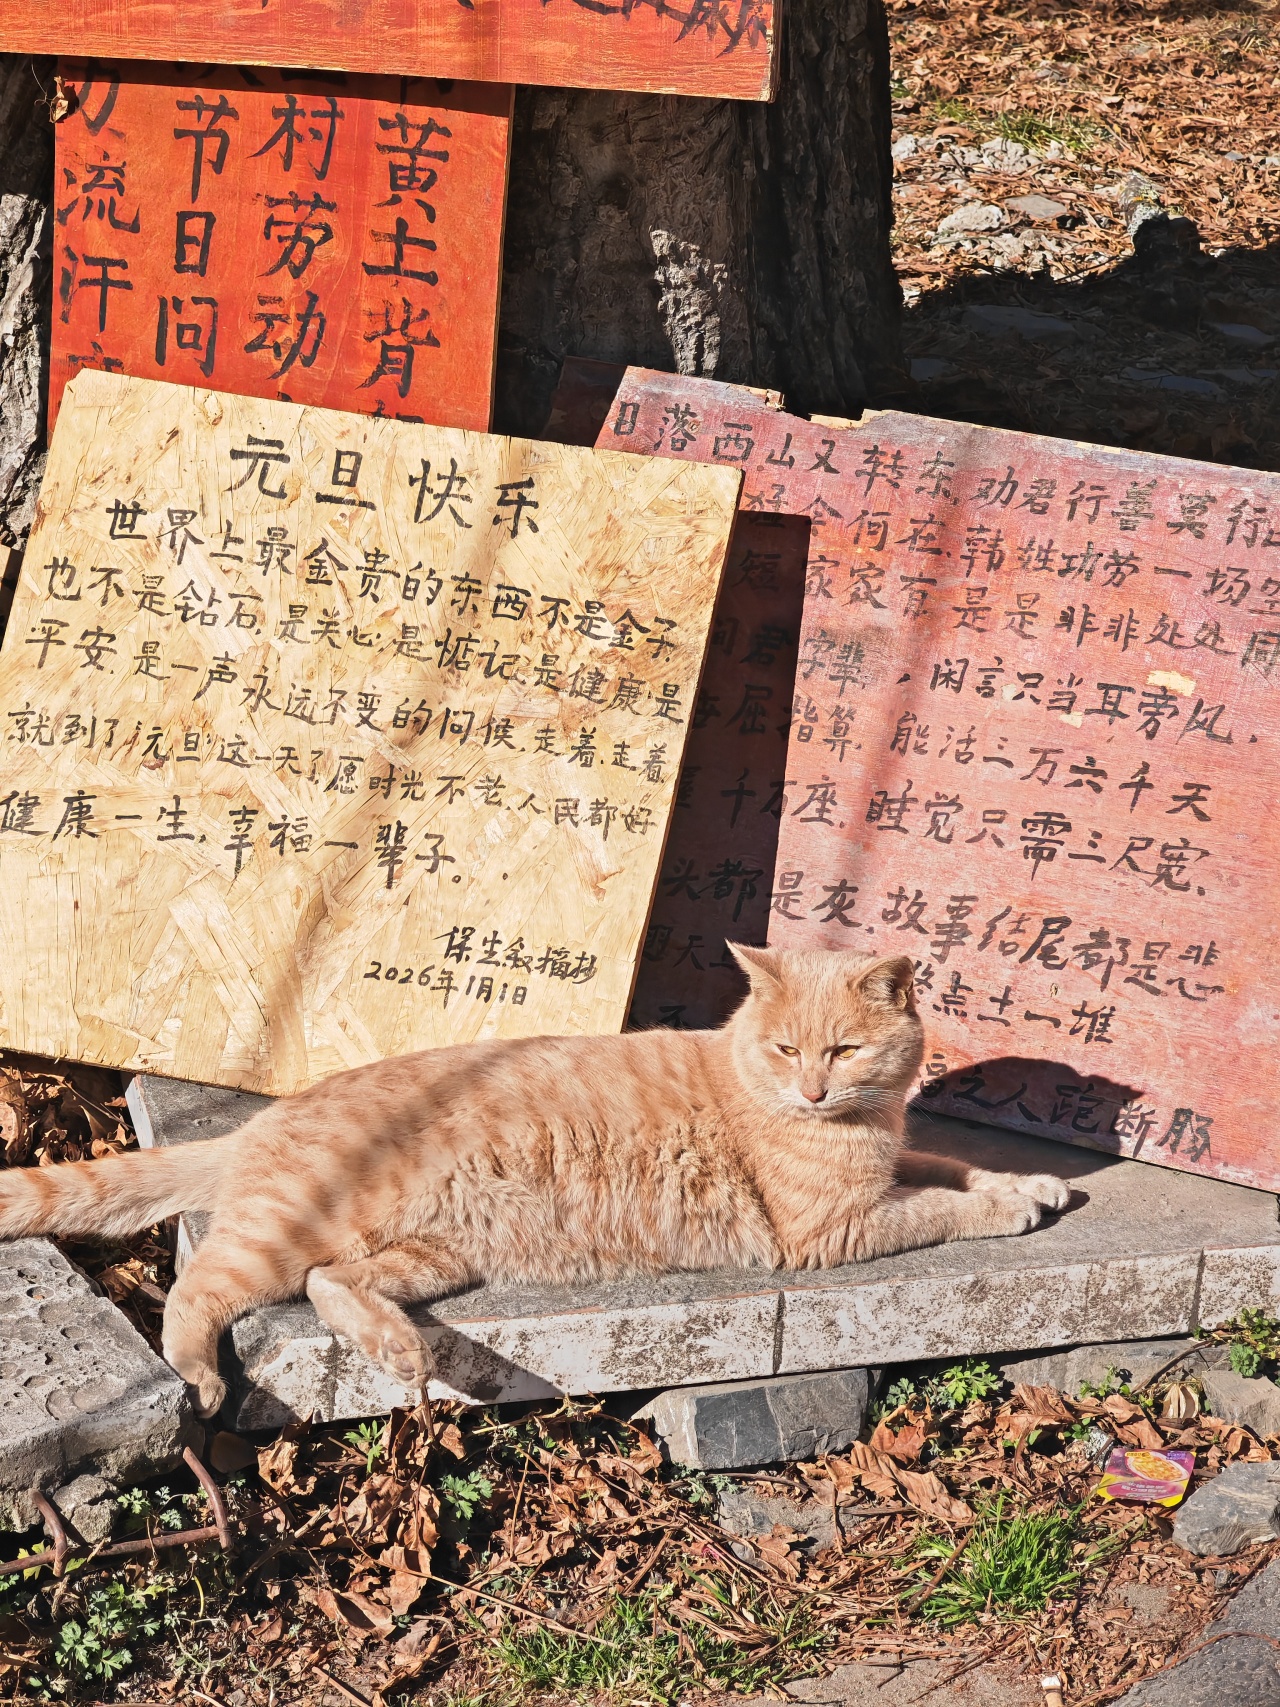 黄土背
村劳动
节日问
流汗
元旦快乐
世界上最金贵的东西不是金子,
也不是钻石,是关心,是惦记,是健康,是
平安,是一声永远不变的问候,走着,走着
就到了元旦这一天了,愿时光不老,人民都好
健康一生,幸福一辈子。
保生叙摘抄
2026年1月1日
日落西山又转东,劝君行善莫行
猛今何在,韩姓功劳一场空
短家家有,是是非非处处同
君字辈,闲言只当耳旁风,
屈指算,能活三万六千天
千万座,睡觉只需三尺宽,
头都是灰,故事结尾都是悲
点土一堆
福之人跑断豚